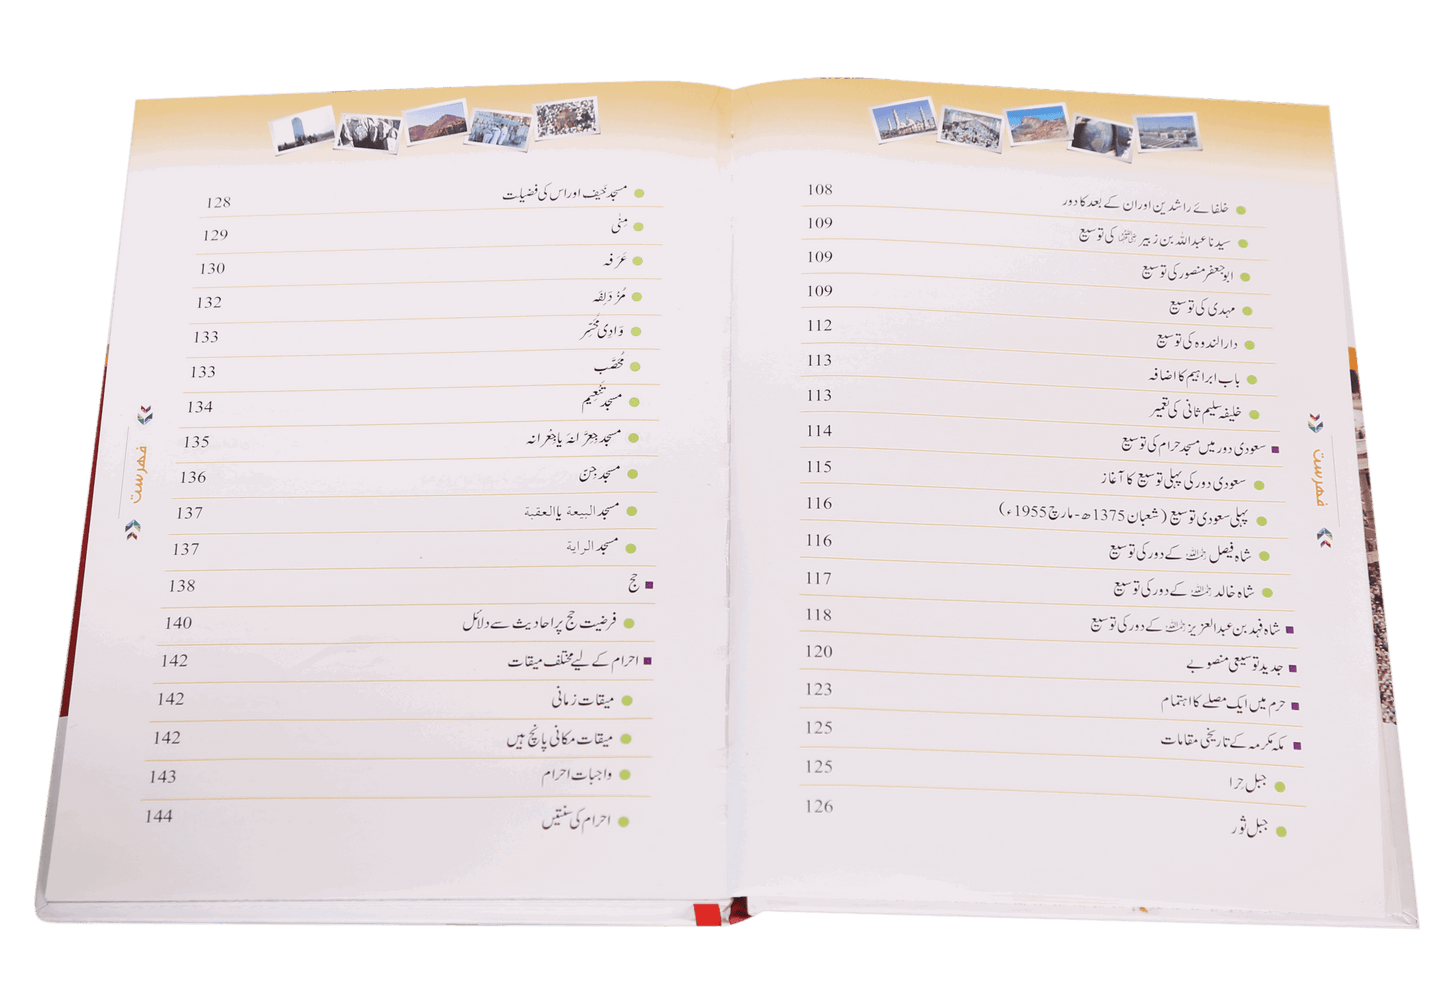 خلفائے راشدین اور ان کے بعد کا دور 108
سیدنا عبداللہ بن زبیر رضی اللہ عنہما کی توسیع 109
ابو جعفر منصور کی توسیع 109
مہدی کی توسیع 109
دارالندوہ کی توسیع 112
باب ابراہیم کا اضافہ 113
خلیفہ سلیم ثانی کی تعمیر 113
سعودی دور میں مسجد حرام کی توسیع 114
سعودی دور کی پہلی توسیع کا آغاز 115
پہلی سعودی توسیع (شعبان 1375ھ - مارچ 1955ء) 116
شاہ فیصل رحمہ اللہ کے دور کی توسیع 116
شاہ خالد رحمہ اللہ کے دور کی توسیع 117
شاہ فہد بن عبدالعزیز رحمہ اللہ کے دور کی توسیع 118
جدید توسیعی منصوبے 120
حرم میں ایک مصلے کا اہتمام 123
مکہ مکرمہ کے تاریخی مقامات 125
جبل حِرا 125
جبل ثور 126
فہرست
مسجد خَیف اور اس کی فضیلت 128
مِنٰی 129
عَرَفہ 130
مُزْدَلِفَہ 132
وَادِی مُحَسِّر 133
مُحَصَّب 133
مسجد تَنْعِیم 134
مسجد جِعِرَّانہ یا جِعْرانہ 135
مسجد جِنّ 136
مسجد البيعة یا العقبة 137
مسجد الراية 137
حج 138
فرضیت حج پر احادیث سے دلائل 140
احرام کے لیے مختلف میقات 142
میقات زمانی 142
میقات مکانی پانچ ہیں 142
واجبات احرام 143
احرام کی سنتیں 144
فہرست